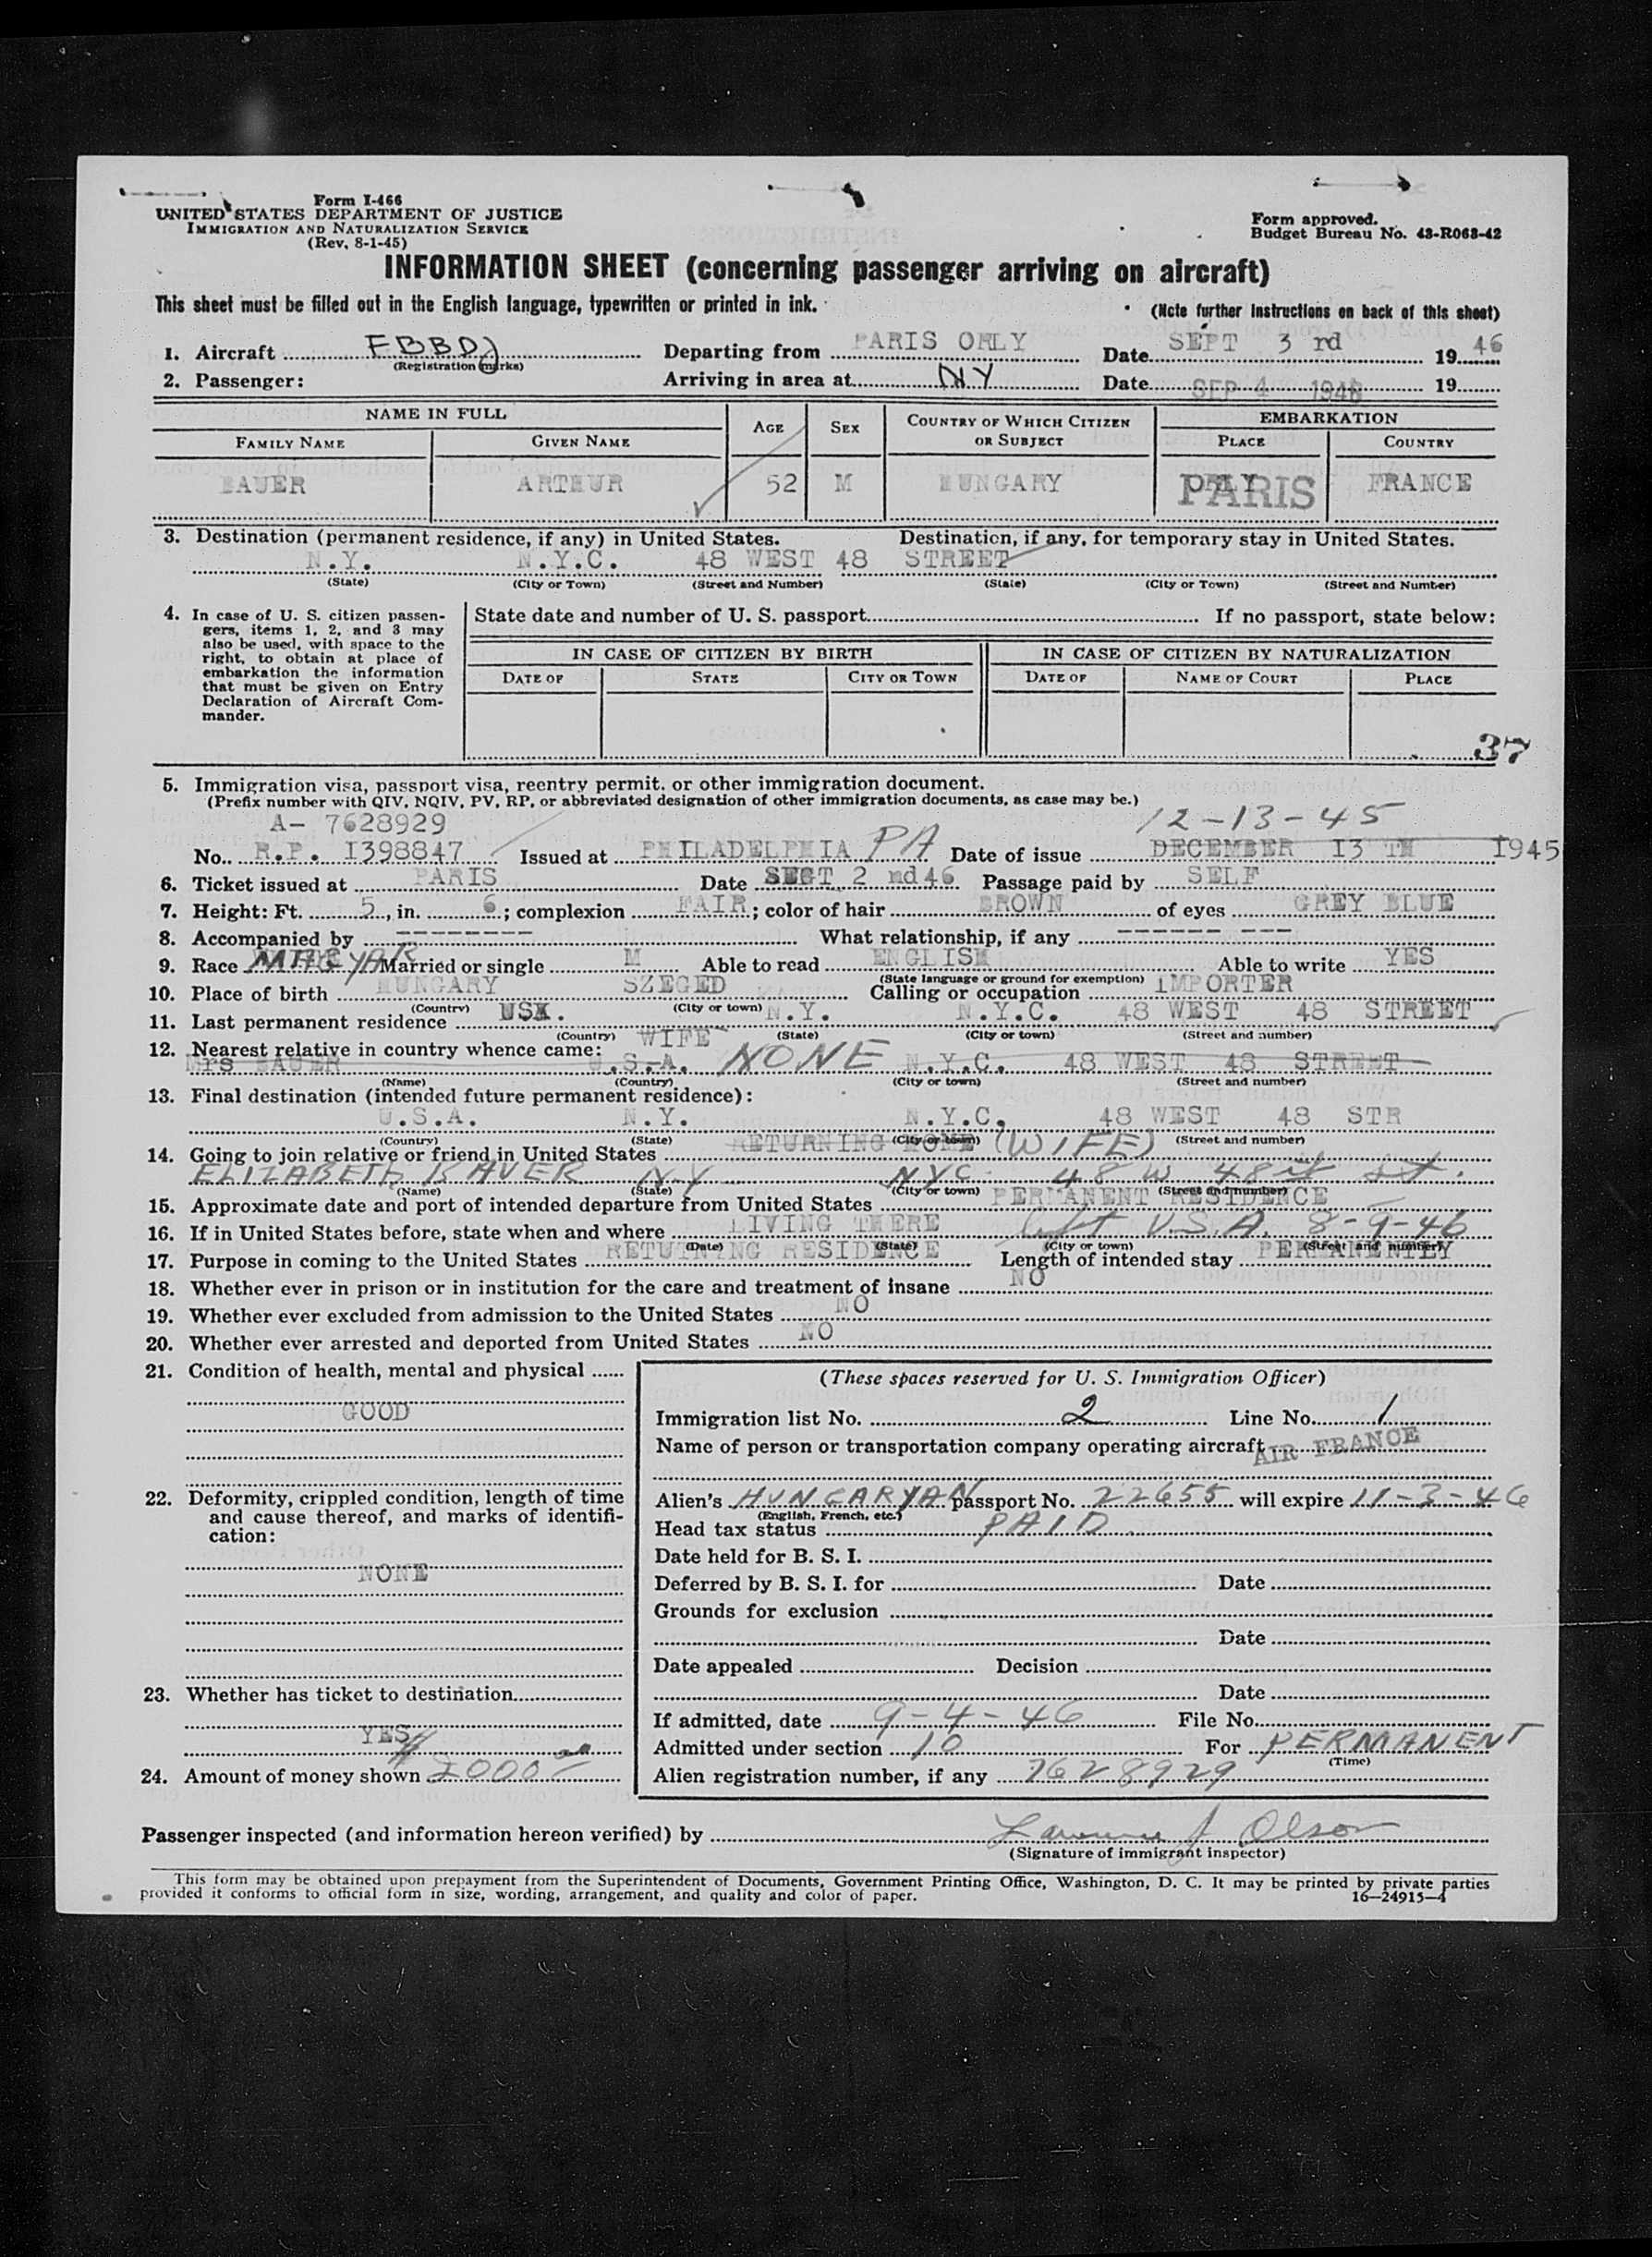 Form I-466
UNITED STATES DEPARTMENT OF JUSTICE
IMMIGRATION AND NATURALIZATION SERVICE
(Rev. 8-1-45)
Form approved.
Budget Bureau No. 43-R063-42
INFORMATION SHEET (concerning passenger arriving on aircraft)
This sheet must be filled out in the English language, typewritten or printed in ink.
(Note further instructions on back of this sheet)
1. Aircraft FBBDJ Departing from PARIS ORLY Date SEPT 3 rd 1946
(Registration marks)
2. Passenger: Arriving in area at NY Date SEP 4 1946 19
NAME IN FULL AGE SEX COUNTRY OF WHICH CITIZEN OR SUBJECT EMBARKATION
FAMILY NAME GIVEN NAME PLACE COUNTRY
BAUER ARTHUR 52 M HUNGARY ORLY PARIS FRANCE
3. Destination (permanent residence, if any) in United States. Destination, if any, for temporary stay in United States.
N.Y. N.Y.C. 48 WEST 48 STREET
(State) (City or Town) (Street and Number) (State) (City or Town) (Street and Number)
4. In case of U. S. citizen passengers, items 1, 2, and 3 may also be used, with space to the right, to obtain at place of embarkation the information that must be given on Entry Declaration of Aircraft Commander.
State date and number of U. S. passport If no passport, state below:
IN CASE OF CITIZEN BY BIRTH IN CASE OF CITIZEN BY NATURALIZATION
DATE OF STATE CITY OR TOWN DATE OF NAME OF COURT PLACE
37
5. Immigration visa, passport visa, reentry permit, or other immigration document.
(Prefix number with QIV, NQIV, PV, RP, or abbreviated designation of other immigration documents, as case may be.)
A- 7628929 12-13-45
No. R.P. I398847 Issued at PHILADELPHIA PA Date of issue DECEMBER I3 TH I945
6. Ticket issued at PARIS Date SEPT 2 nd 46 Passage paid by SELF
7. Height: Ft. 5, in. 6; complexion FAIR; color of hair BROWN of eyes GREY BLUE
8. Accompanied by -------- What relationship, if any ------ ---
9. Race MAGYAR Married or single M Able to read ENGLISH Able to write YES
(State language or ground for exemption)
10. Place of birth HUNGARY SZEGED Calling or occupation IMPORTER
(Country) (City or town)
11. Last permanent residence USA. N.Y. N.Y.C. 48 WEST 48 STREET
(Country) (State) (City or town) (Street and number)
12. Nearest relative in country whence came: WIFE
Mrs BAUER U.S.A. NONE N.Y.C. 48 WEST 48 STREET
(Name) (Country) (City or town) (Street and number)
13. Final destination (intended future permanent residence):
U.S.A. N.Y. N.Y.C. 48 WEST 48 STR
(Country) (State) (City or town) (Street and number)
14. Going to join relative or friend in United States RETURNING HOME (WIFE)
ELIZABETH BAUER N.Y NYC 48 W 48 st St.
(Name) (State) (City or town) (Street and number)
15. Approximate date and port of intended departure from United States PERMANENT RESIDENCE
16. If in United States before, state when and where LIVING THERE left U.S.A. 8-9-46
(Date) (State) (City or town) (Street and number)
17. Purpose in coming to the United States RETURNING RESIDENCE Length of intended stay PERMANENTLY
18. Whether ever in prison or in institution for the care and treatment of insane NO
19. Whether ever excluded from admission to the United States NO
20. Whether ever arrested and deported from United States NO
21. Condition of health, mental and physical
GOOD
22. Deformity, crippled condition, length of time and cause thereof, and marks of identification:
NONE
23. Whether has ticket to destination
YES
24. Amount of money shown
(These spaces reserved for U. S. Immigration Officer)
Immigration list No. 2 Line No. 1
Name of person or transportation company operating aircraft AIR FRANCE
Alien's HUNGARYAN passport No. 22655 will expire 11-3-46
(English, French, etc.)
Head tax status PAID
Date held for B. S. I.
Deferred by B. S. I. for Date
Grounds for exclusion
Date
Date appealed Decision
Date
If admitted, date 9-4-46 File No.
Admitted under section 10 For PERMANENT
(Time)
Alien registration number, if any 7628929
Passenger inspected (and information hereon verified) by Lawrence J Olson
(Signature of immigrant inspector)
This form may be obtained upon prepayment from the Superintendent of Documents, Government Printing Office, Washington, D. C. It may be printed by private parties
provided it conforms to official form in size, wording, arrangement, and quality and color of paper.
16—24915-4